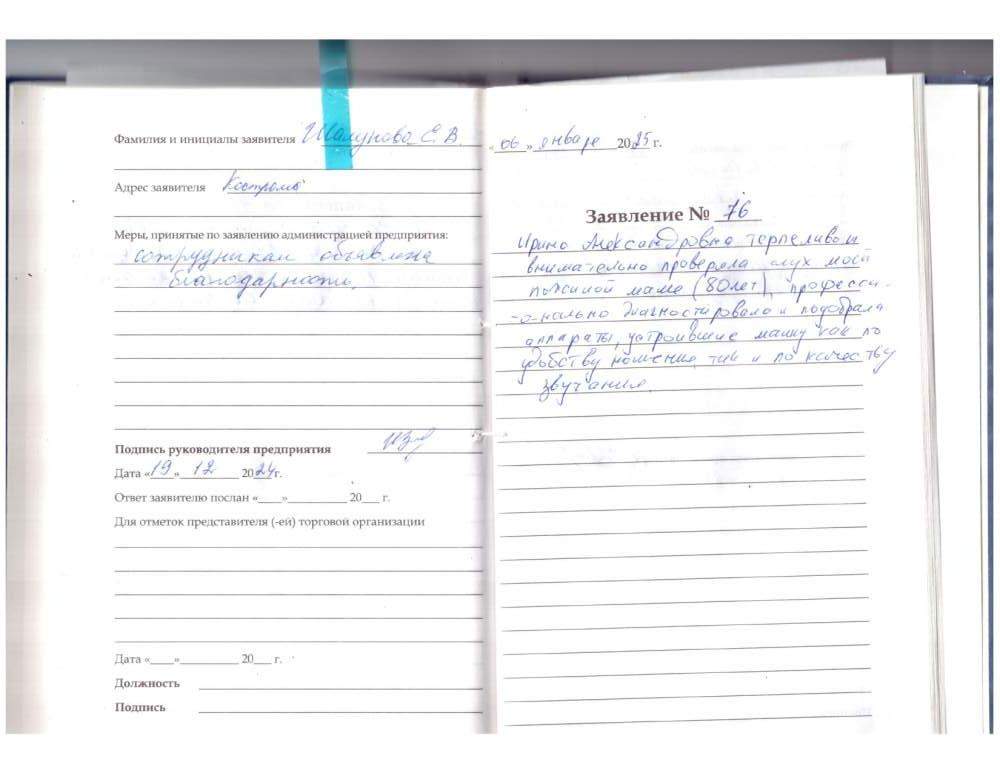 Фамилия и инициалы заявителя Шалунова Е. В.
Адрес заявителя Кострома
Меры, принятые по заявлению администрацией предприятия:
сотрудникам объявлена
благодарность.
Подпись руководителя предприятия
Дата «19» 12 2024г.
Ответ заявителю послан «___»__________ 20___ г.
Для отметок представителя (-ей) торговой организации
Дата «____»__________ 20___ г.
Должность
Подпись
«06» января 2025 г.
Заявление № 76
Ирина Александровна терпеливо и
внимательно проверяла слух моей
пожилой маме (80 лет), професси-
онально диагностировала и подобрала
аппараты, устроившие маму как по
удобству ношения, так и по качеству
звучания.